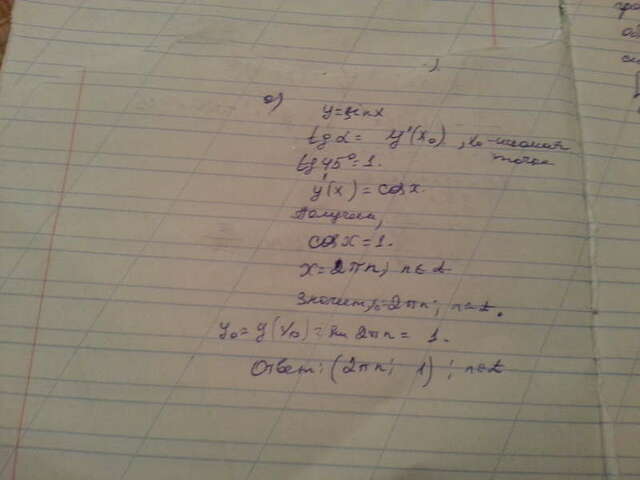 а)
y=sinx
tgα = y'(x₀), x₀ - искомая
точка
tg45°=1.
y'(x) = cosx.
Получаем,
cosx=1.
x=2πn, n∈Z
Значит, x₀=2πn; n∈Z.
y₀=y(x₀)=sin 2πn = 1.
Ответ: (2πn; 1); n∈Z